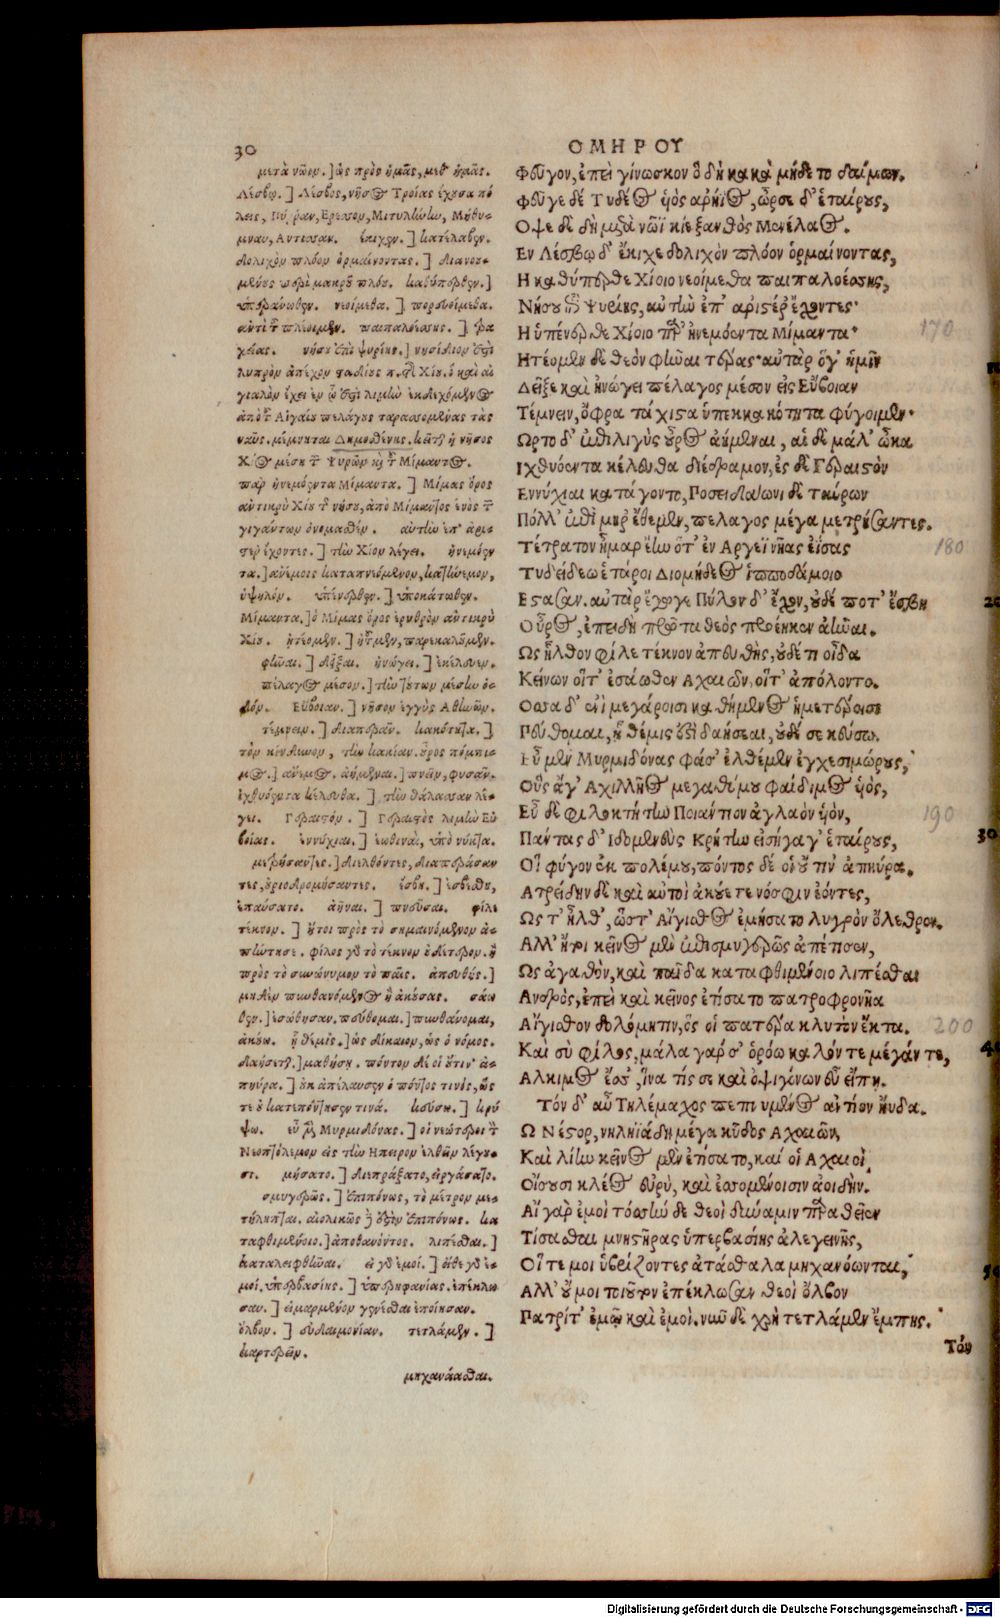 30
ΟΜΗΡΟΥ
μετὰ νῶϊν.] ὡς πρὸς ἡμᾶς, μεθ' ἡμᾶς.
Λέσβῳ.] Λέσβος, νῆσος Τροίας ἔχουσα πό
λεις, Πύρραν, Ἔρεσσον, Μιτυλήνην, Μήθυ-
μναν, Αντισσαν. ἔκιχεν.] κατέλαβεν.
δολιχὸν πλόον ὁρμαίνοντας.] διανοου-
μένους περὶ μακροῦ πλόυ. καθύπερθεν.]
ὑπεράνωθεν. νεοίμεθα.] πορευοίμεθα.
ἀντὶ τοῦ πλέοιμεν. παιπαλοέσσης.] τρα
χείας. νήσου ἐπὶ ψυρίης.] νησίδιον ἐστὶ
λυπρὸν ἀπέχον σταδίους π. τῆς Χίου. ὁ καὶ αἰ
γιαλὸν ἔχει ἐν ᾧ ἐστὶ λιμὴν ἐκδεχόμενος
ἀπὸ τοῦ Αἰγαίου πελάγους ταρασσομένας τὰς
ναῦς. μέμνηται Δημοσθένης. κεῖται ἡ νῆσος
Χίος μέση τῶν Ψυρῶν καὶ τοῦ Μίμαντος.
παρ ἠνεμόεντα Μίμαντα.] Μίμας ὄρος
ἀντικρὺ Χίου τῆς νήσου, ἀπὸ Μίμαντος ἑνὸς τῶν
γιγάντων ὀνομασθέν. αὐτὴν ἐπ' ἀρι-
στέρ' ἔχοντες.] τὴν Χίον λέγει. ἠνεμόεν
τα.] ἀνέμοις καταπνεόμενον, κατήνεμον,
ὑψηλόν. ὑπένερθεν.] ὑποκάτωθεν.
Μίμαντα.] ὁ Μίμας ὄρος ἐρυθρὸν ἀντικρὺ
Χίου. ᾐτέομεν.] ᾐτοῦμεν, παρεκαλοῦμεν.
φῆναι.] δεῖξαι. ἠνώγει.] ἐκέλευεν.
πέλαγος μέσον.] τὴν τούτων μέσην ὁ-
δόν. Εὔβοιαν.] νῆσον ἐγγὺς Αθηνῶν.
τέμνειν.] διαπερᾶν. κακότητα.]
τὸν κίνδυνον, τὴν κακίαν. οὖρος πόμπι-
μος.] ἄνεμος. ἀήμεναι.] πνεῖν, φυσᾶν.
ἰχθυόεντα κέλευθα.] τὴν θάλασσαν λέ-
γει. Γεραιστόν.] Γεραιστὸς λιμὴν Εὐ
βοίας. ἐννύχιαι.] ἑωθιναὶ, ὑπὸ νύκτα.
μετρήσαντες.] διελθόντες, διαπεράσαν
τες, οὐριοδρομήσαντες. ἔσβη.] ἐσβέσθη,
ἐπαύσατο. ἀῆναι.] πνεῦσαι. φίλε
τέκνον.] ἤτοι πρὸς τὸ σημαινόμενον ἀ-
πήντησε. φίλος γὰρ τὸ τέκνον ὁ δεύτερον. ἢ
πρὸς τὸ συνώνυμον τὸ παῖς. ἀπευθής.]
μηδὲν πυνθανόμενος ἢ ἀκούσας. σάω
θεν.] ἐσώθησαν. πεύθομαι.] πυνθάνομαι,
ἀκούω. ἣ θέμις.] ὡς δίκαιον, ὡς ὁ νόμος.
δαήσεαι.] μαθήσῃ. πόντον δέ οἱ οὔτιν' ἀ-
πηύρα.] οὐκ ἀπέλαυσεν ὁ πόντος τινὸς, ὥς
τε οὐ κατεπόντησεν τινά. κεύσω.] κρύ
ψω. εὖ μὲν Μυρμιδόνας.] οἱ νεώτεροι τὸν
Νεοπτόλεμον εἰς τὴν Ηπειρον ἐλθεῖν λέγου-
σι. μήσατο.] διεπράξατο, εἰργάσατο.
σμυγερῶς.] ἐπιπόνως, τὸ μέτρον με-
τείληπται. αἰολικῶς ἀντὶ τοῦ ἐπιπόνως. κα
ταφθιμένοιο.] ἀποθανόντος. λιπέσθαι.]
καταλειφθῆναι. εἰ γὰρ ἐμοί.] εἴθε γὰρ ἐ-
μοί. ὑπερβασίης.] ὑπερηφανίας. ἐπέκλω
σαν.] εἱμαρμένον γενέσθαι ἐποίησαν.
ὄλβον.] εὐδαιμονίαν. τετλάμεν.]
καρτερεῖν.
μηχανάασθαι.
Φεῦγον, ἐπεὶ γίνωσκον ὃ δὴ κακὰ μήδετο δαίμων.
Φεῦγε δὲ Τυδέος ὑιὸς ἀρήϊος, ὦρσε δ' ἑταίρους,
Οψε δὲ δὴ μετὰ νῶϊ κίε ξανθὸς Μενέλαος.
Εν Λέσβῳ δ' ἔκιχε δολιχὸν πλόον ὁρμαίνοντας,
Η καθύπερθε Χίοιο νεοίμεθα παιπαλοέσσης,
Νήσου ἐπὶ Ψυρίης, αὐτὴν ἐπ' ἀριστέρ' ἔχοντες·
Η ὑπένερθε Χίοιο παρ' ἠνεμόεντα Μίμαντα· 170
Ητέομεν δὲ θεὸν φῆναι τέρας· αὐτὰρ ὅγ' ἡμῖν
Δεῖξε καὶ ἠνώγει πέλαγος μέσον εἰς Εὔβοιαν
Τέμνειν, ὄφρα τάχιστα ὑπὲκ κακότητα φύγοιμεν·
Ωρτο δ' ἐπὶ λιγὺς οὖρος ἀήμεναι, αἱ δὲ μάλ' ὦκα
Ιχθυόεντα κέλευθα διέδραμον, ἐς δὲ Γεραιστὸν
Εννύχιαι κατάγοντο, Ποσειδάωνι δὲ ταύρων
Πόλλ' ἐπὶ μῆρ' ἔθεμεν, πέλαγος μέγα μετρήσαντες.
Τέτρατον ἦμαρ ἔην ὅτ' ἐν Αργεϊ νῆας ἐΐσας 180
Τυδείδεω ἕταροι Διομήδεος ἱπποδάμοιο
Εστασαν. αὐτὰρ ἔγωγε Πύλον δ' ἔχον, οὐδέ ποτ' ἔσβη
Οὖρος, ἐπειδὴ πρῶτα θεὸς προέηκεν ἀῆναι.
Ως ἦλθον φίλε τέκνον ἀπευθὴς, οὐδέ τι οἶδα
Κείνων οἵτ' ἐσάωθεν Αχαιῶν, οἵτ' ἀπόλοντο.
Οσσα δ' ἐνὶ μεγάροισι καθήμενος ἡμετέροισι
Πεύθομαι, ἣ θέμις ἐστὶ δαήσεαι, οὐδέ σε κεύσω.
Εὖ μὲν Μυρμιδόνας φάσ' ἐλθέμεν ἐγχεσιμώρους,
Οὓς ἄγ' Αχιλλῆος μεγαθύμου φαίδιμος ὑιὸς,
Εὖ δὲ Φιλοκτήτην Ποιάντιον ἀγλαὸν ὑιὸν, 190
Πάντας δ' Ιδομενεὺς Κρήτην εἰσήγαγ' ἑταίρους,
Οἳ φύγον ἐκ πολέμου, πόντος δέ οἱ οὔ τιν' ἀπηύρα.
Ατρείδην δὲ καὶ αὐτοὶ ἀκούετε νόσφιν ἐόντες,
Ως τ' ἦλθ', ὥς τ' Αἴγισθος ἐμήσατο λυγρὸν ὄλεθρον.
Αλλ' ἤτοι κεῖνος μὲν ἐπισμυγερῶς ἀπέτισεν,
Ως ἀγαθὸν, καὶ παῖδα καταφθιμένοιο λιπέσθαι
Ανδρὸς, ἐπεὶ καὶ κεῖνος ἐτίσατο πατροφονῆα
Αἴγισθον δολόμητιν, ὅς οἱ πατέρα κλυτὸν ἔκτα. 200
Καὶ σὺ φίλος, μάλα γάρ σ' ὁρόω καλόν τε μέγάν τε,
Αλκιμος ἔσσ', ἵνα τίς σε καὶ ὀψιγόνων εὖ εἴπῃ.
Τὸν δ' αὖ Τηλέμαχος πεπνυμένος ἀντίον ηὔδα.
Ω Νέστορ, νηληϊάδη μέγα κῦδος Αχαιῶν,
Καὶ λίην κεῖνος μὲν ἐτίσατο, καί οἱ Αχαιοὶ
Οἴσουσι κλέος εὐρὺ, καὶ ἐσσομένοισιν ἀοιδήν.
Αἲ γὰρ ἐμοὶ τόσσην δε θεοὶ δύναμιν παραθεῖεν
Τίσασθαι μνηστῆρας ὑπερβασίης ἀλεγεινῆς,
Οἵτε μοι ὑβρίζοντες ἀτάσθαλα μηχανόωνται,
Αλλ' οὔ μοι τοιοῦτον ἐπέκλωσαν θεοὶ ὄλβον
Πατρί τ' ἐμῷ καὶ ἐμοί. νῦν δὲ χρὴ τετλάμεν ἔμπης.
Τόν
20
30
40
Digitalisierung gefördert durch die Deutsche Forschungsgemeinschaft - DFG